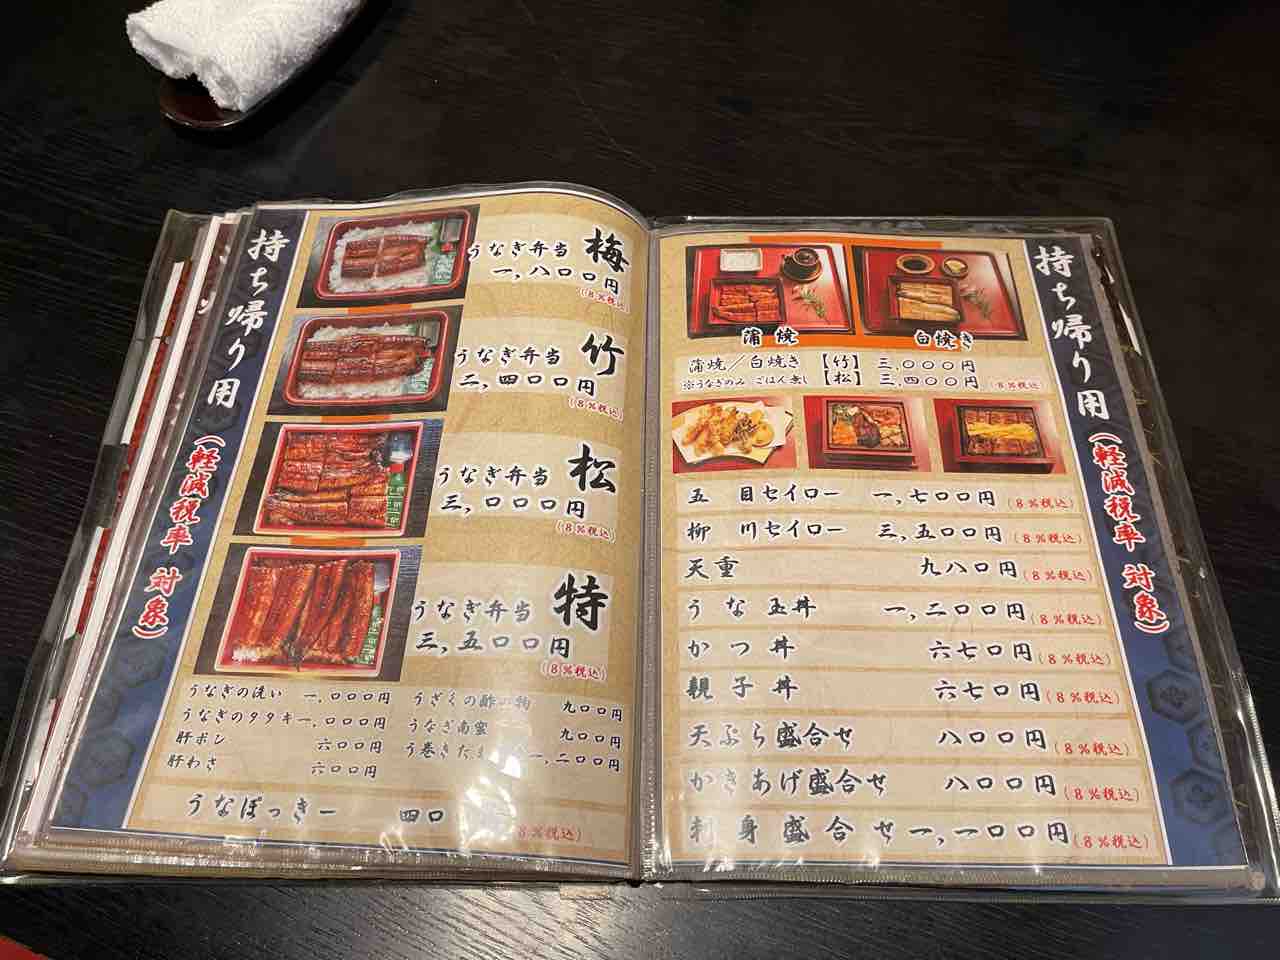 持ち帰り用
(軽減税率 対象)
梅
うなぎ弁当
一,八〇〇円
(8%税込)
竹
うなぎ弁当
二,四〇〇円
(8%税込)
松
うなぎ弁当
三,〇〇〇円
(8%税込)
特
うなぎ弁当
三,五〇〇円
(8%税込)
うなぎの洗い 一,〇〇〇円
うなぎのタタキ 一,〇〇〇円
肝ポン 六〇〇円
肝わさ 六〇〇円
うざくの酢の物 九〇〇円
うなぎ南蛮 九〇〇円
う巻きたま 一,二〇〇円
うなぼっきー 四〇
8%税込)
持ち帰り用
(軽減税率 対象)
蒲焼
白焼き
蒲焼/白焼き 【竹】 三,〇〇〇円
※うなぎのみ ごはん無し 【松】 三,四〇〇円 (8%税込)
五目セイロー 一,七〇〇円 (8%税込)
柳川セイロー 三,五〇〇円 (8%税込)
天重 九八〇円 (8%税込)
うな玉丼 一,二〇〇円 (8%税込)
かつ丼 六七〇円 (8%税込)
親子丼 六七〇円 (8%税込)
天ぷら盛合せ 八〇〇円 (8%税込)
かきあげ盛合せ 八〇〇円 (8%税込)
刺身盛合せ 一,一〇〇円 (8%税込)